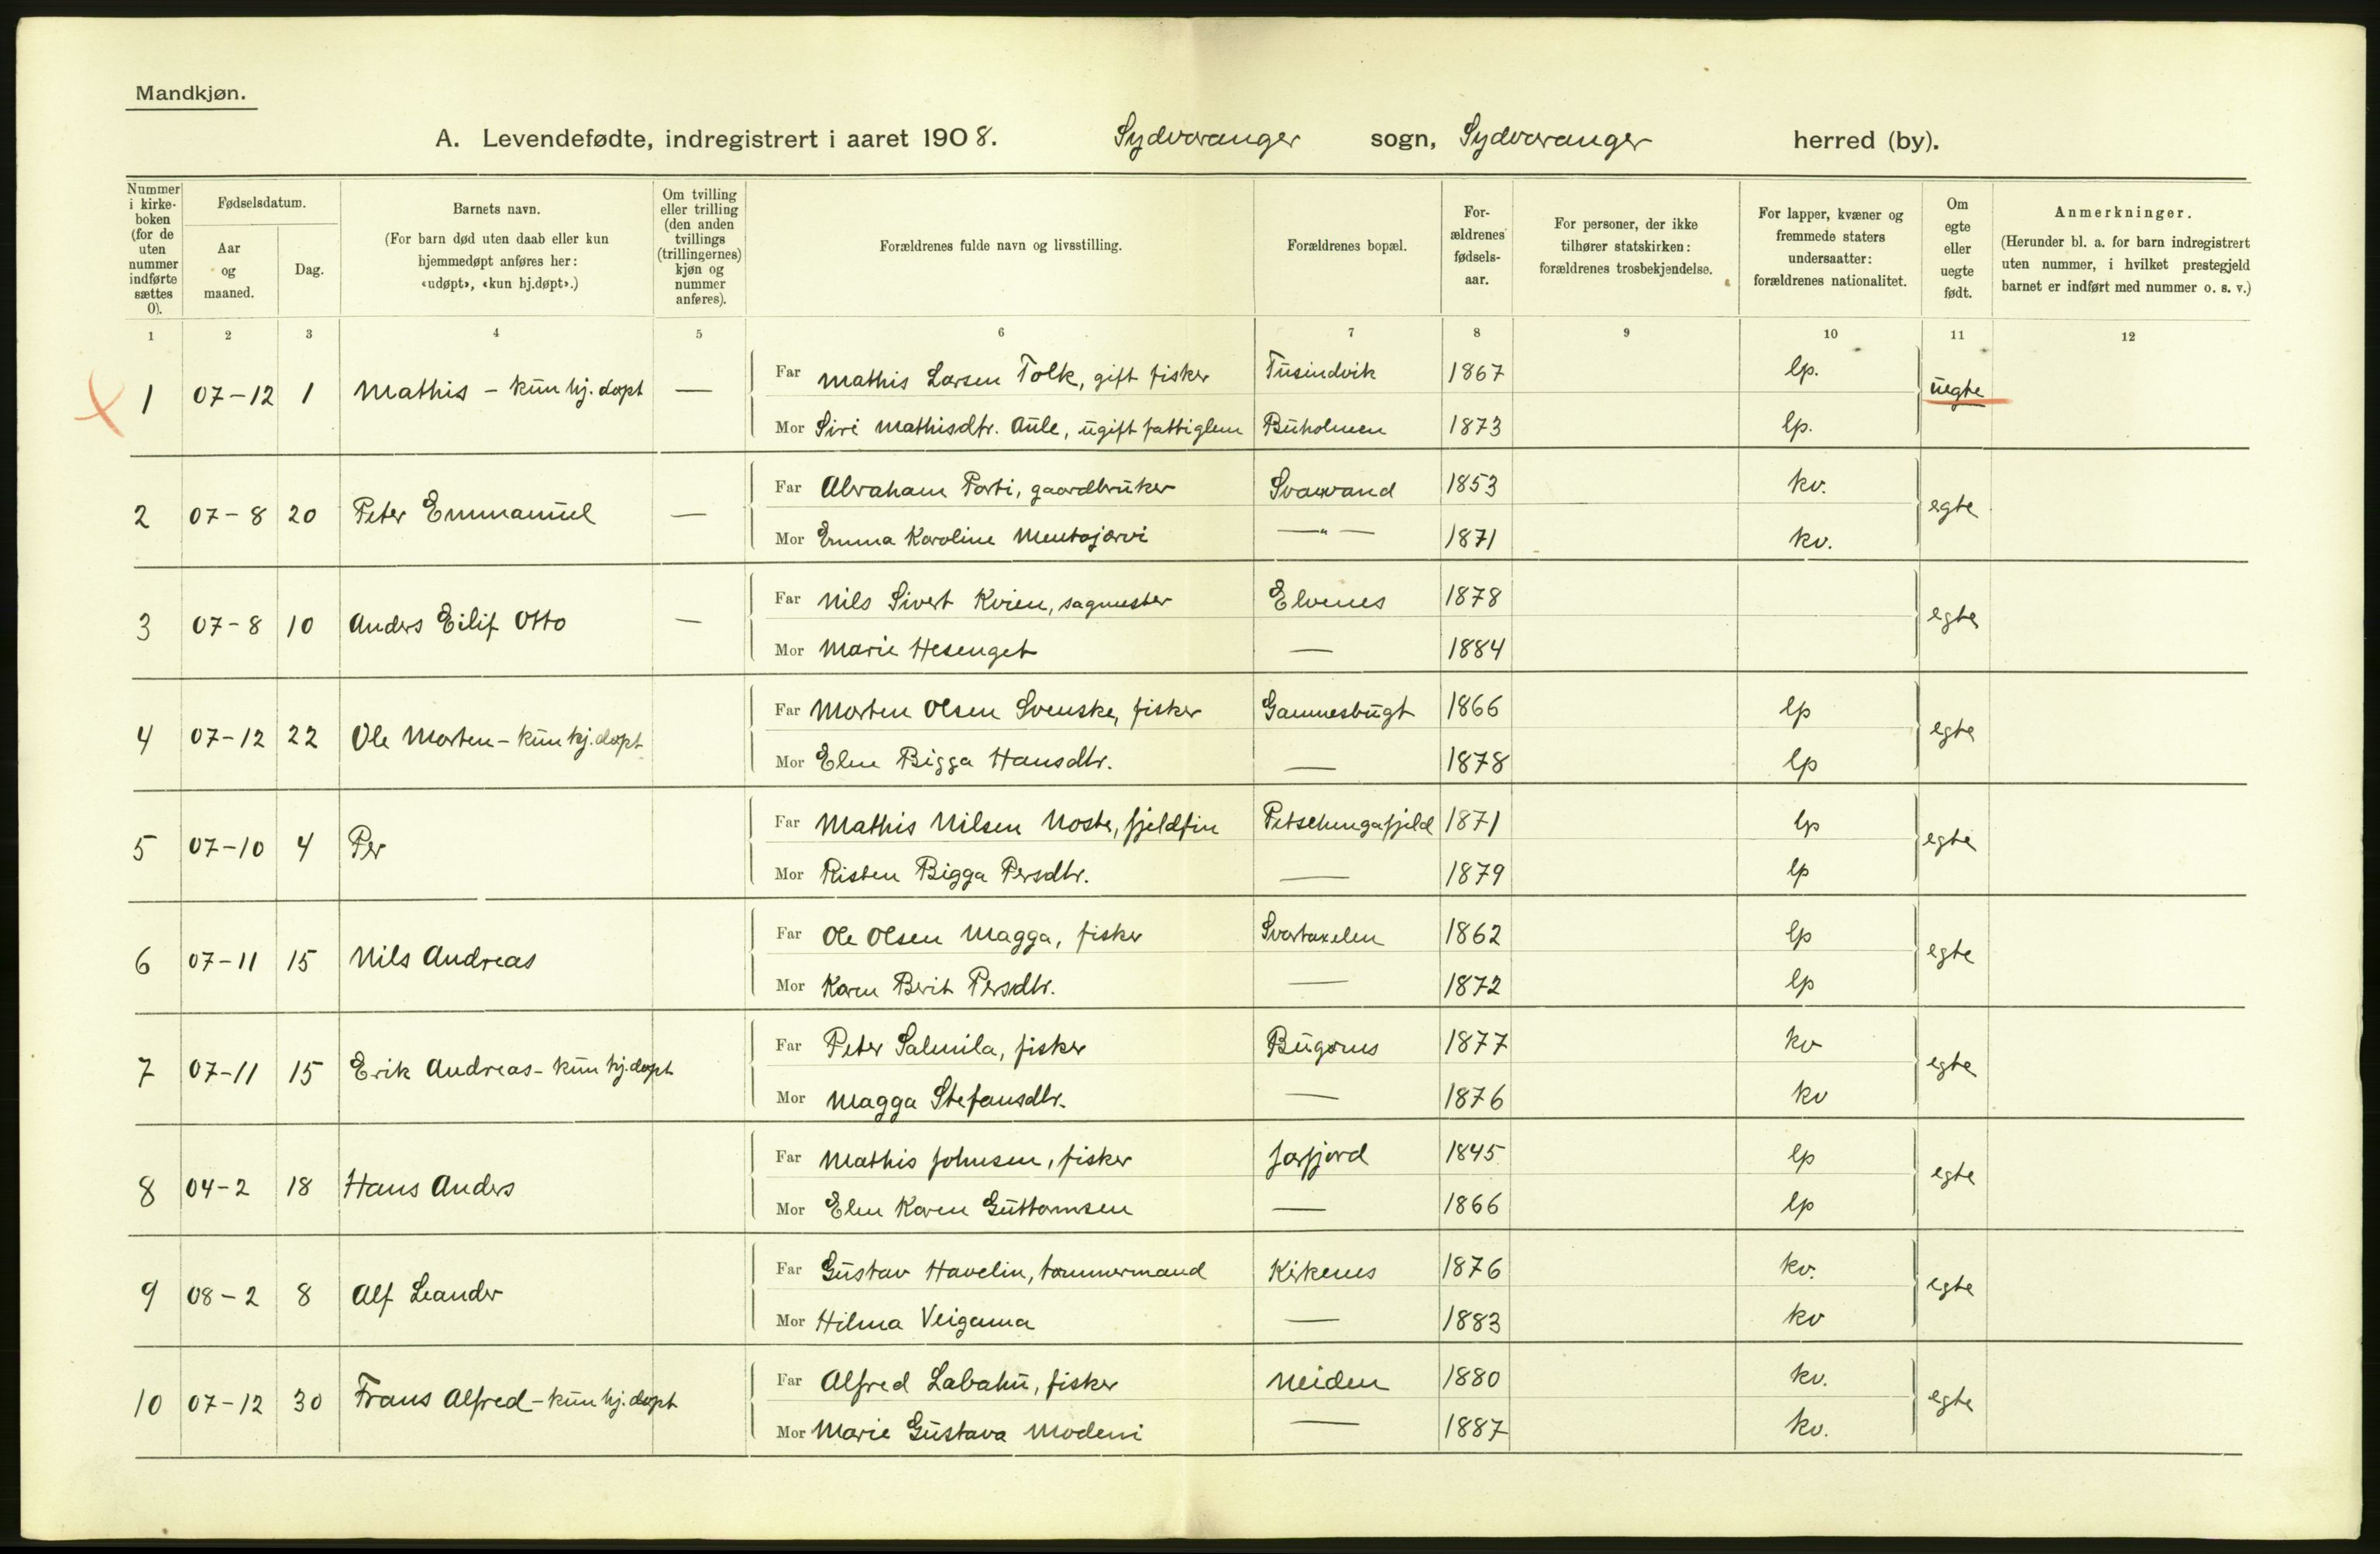 Mandkjøn.
A. Levendefødte, indregistrert i aaret 1908. Sydvaranger sogn, Sydvaranger herred (by).
Nummer i kirke-boken (for de uten nummer indførte sættes 0).
Fødselsdatum.
Aar og maaned.
Dag.
Barnets navn.
(For barn død uten daab eller kun hjemmedøpt anføres her: «udøpt», «kun hj.døpt».)
Om tvilling eller trilling (den anden tvillings (trillingernes) kjøn og nummer anføres).
Forældrenes fulde navn og livsstilling.
Forældrenes bopæl.
For-ældrenes fødsels-aar.
For personer, der ikke tilhører statskirken: forældrenes trosbekjendelse.
For lapper, kvæner og fremmede staters undersaatter: forældrenes nationalitet.
Om egte eller uegte født.
Anmerkninger.
(Herunder bl. a. for barn indregistrert uten nummer, i hvilket prestegjeld barnet er indført med nummer o. s. v.)
1 2 3 4 5 6 7 8 9 10 11 12
1 07-12 1 Mathis - kun hj. døpt — Far Mathis Larsen Tolk, gift fisker Tusindvik 1867 lp. uegte
Mor Siri Mathisdtr. Aule, ugift fattiglem Buholmen 1873 lp.
2 07-8 20 Peter Emmanuel — Far Abraham Porti, gaardbruker Svanvand 1853 kv. egte
Mor Emma Karoline Mentajærvi —"— 1871 kv.
3 07-8 10 Anders Eilif Otto — Far Nils Sivert Kvien, sagmester Elvenes 1878 egte
Mor Marie Hesenget — 1884
4 07-12 22 Ole Morten - kun hj. døpt Far Morten Olsen Svenske, fisker Gamnesbugt 1866 lp egte
Mor Elen Bigga Hansdtr. — 1878 lp
5 07-10 4 Per Far Mathis Nilsen Noste, fjeldfin Petschengafjeld 1871 lp egte
Mor Risten Bigga Persdtr. — 1879 lp
6 07-11 15 Nils Andreas Far Ole Olsen Magga, fisker Svartaxelen 1862 lp egte
Mor Karen Berit Persdtr. — 1872 lp
7 07-11 15 Erik Andreas - kun hj. døpt Far Peter Salmila, fisker Bugønes 1877 kv egte
Mor Magga Stefansdtr. — 1876 kv
8 04-2 18 Hans Anders Far Mathis Johnsen, fisker Jarfjord 1845 lp egte
Mor Elen Karen Guttormsen — 1866 lp
9 08-2 8 Alf Leander Far Gustav Havelin, tømmermand Kirkenes 1876 kv. egte
Mor Hilma Veigama — 1883 kv
10 07-12 30 Frans Alfred - kun hj. døpt Far Alfred Labahu, fisker Neiden 1880 kv. egte
Mor Marie Gustava Modeni — 1887 kv.